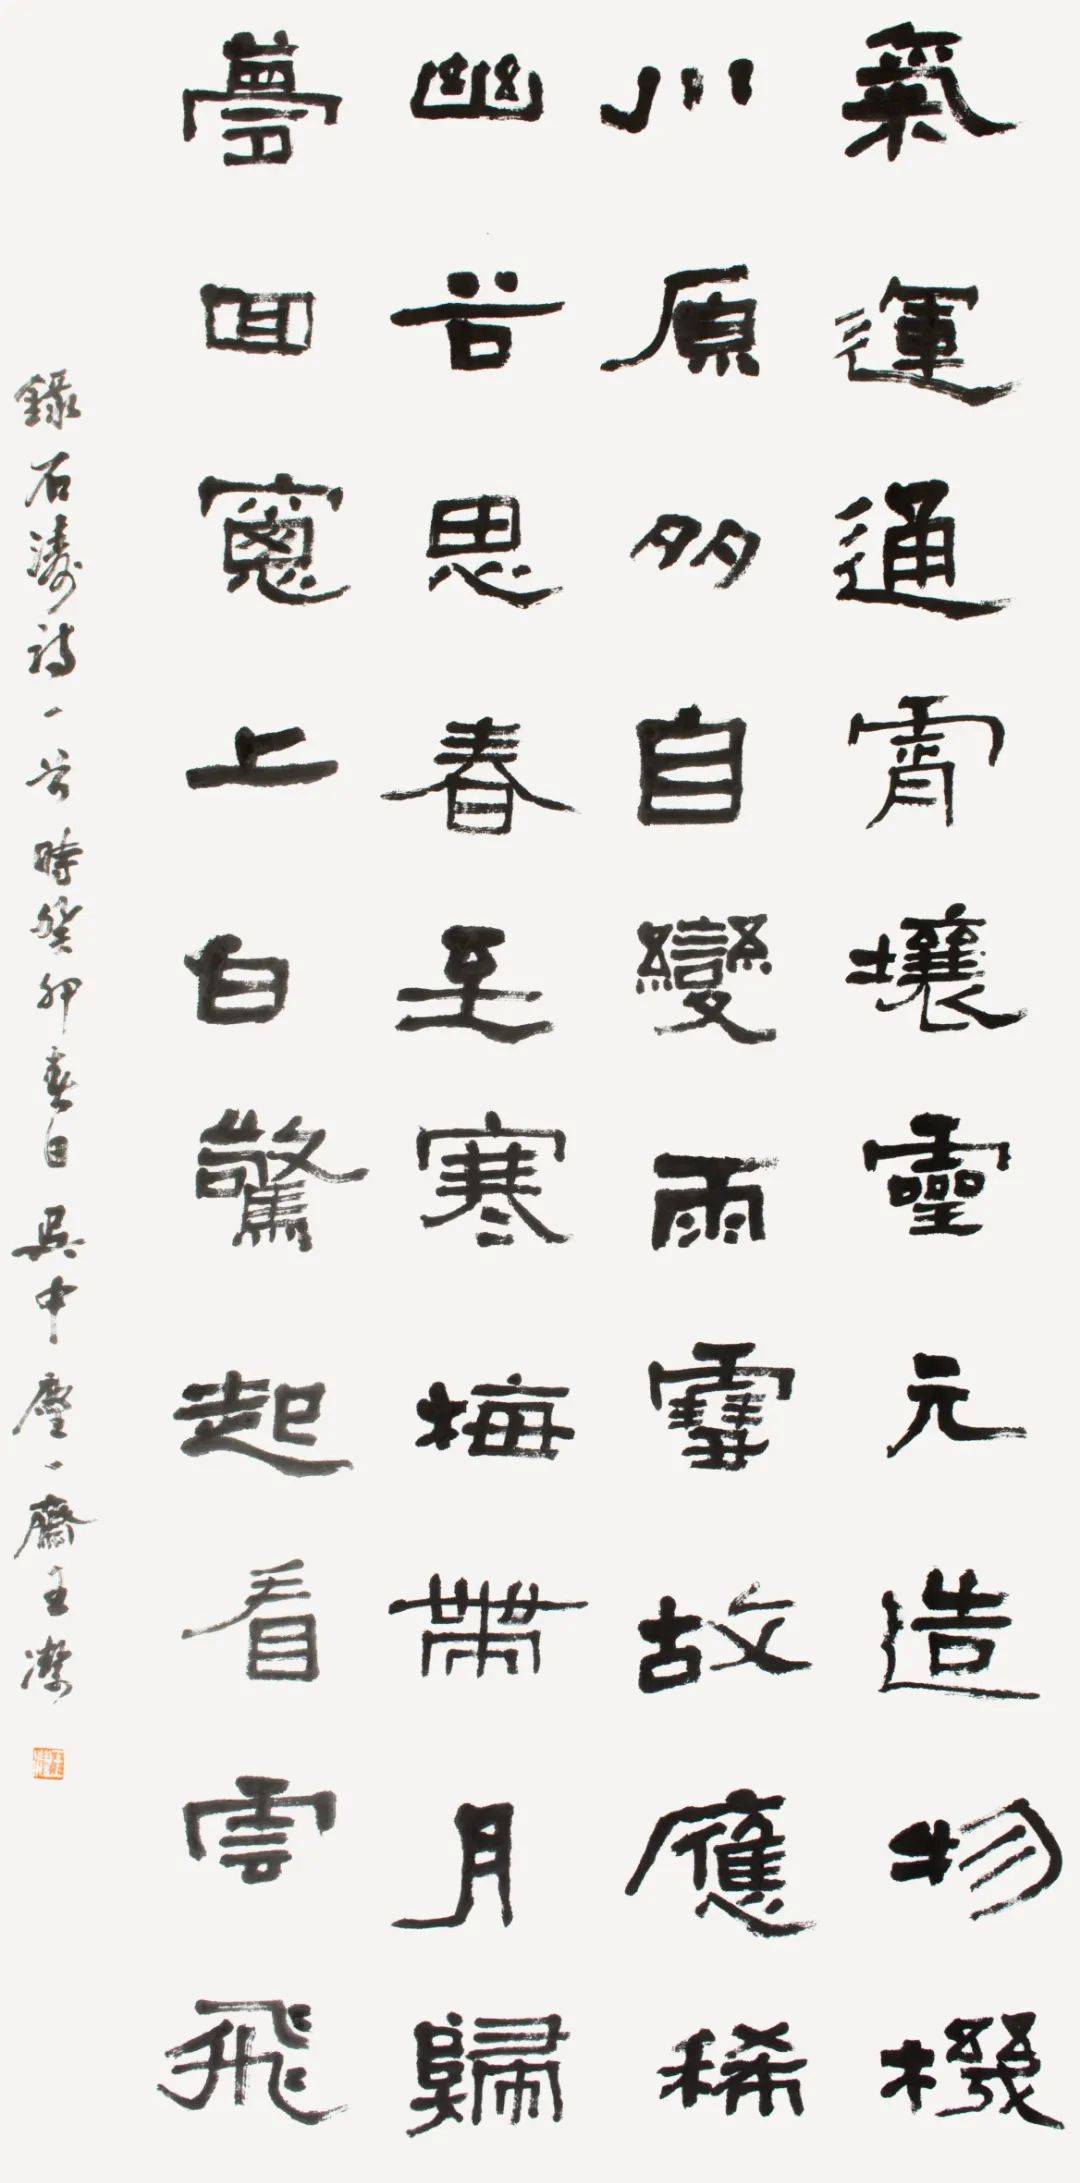 氣運通霄壤靈元造物機
川原多自變雨雪故應稀
幽谷思春至寒梅帶月歸
夢回窻上白驚起看雲飛
錄石濤詩一首時癸卯春日吳中塵一齋王漈